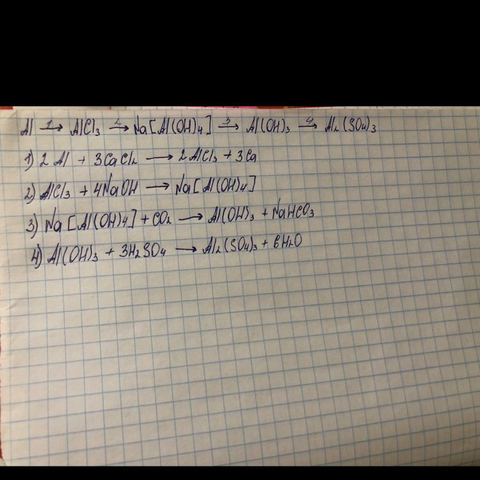 Al 1→ AlCl₃ 2→ Na[Al(OH)₄] 3→ Al(OH)₃ 4→ Al₂(SO₄)₃
1) 2Al + 3CaCl₂ → 2AlCl₃ + 3Ca
2) AlCl₃ + 4NaOH → Na[Al(OH)₄]
3) Na[Al(OH)₄] + CO₂ → Al(OH)₃ + NaHCO₃
4) Al(OH)₃ + 3H₂SO₄ → Al₂(SO₄)₃ + 6H₂O